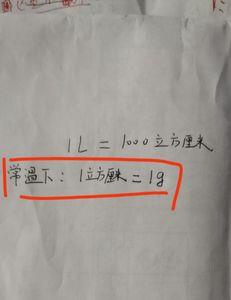 1L = 1000立方厘米
常温下：1立方厘米 = 1g